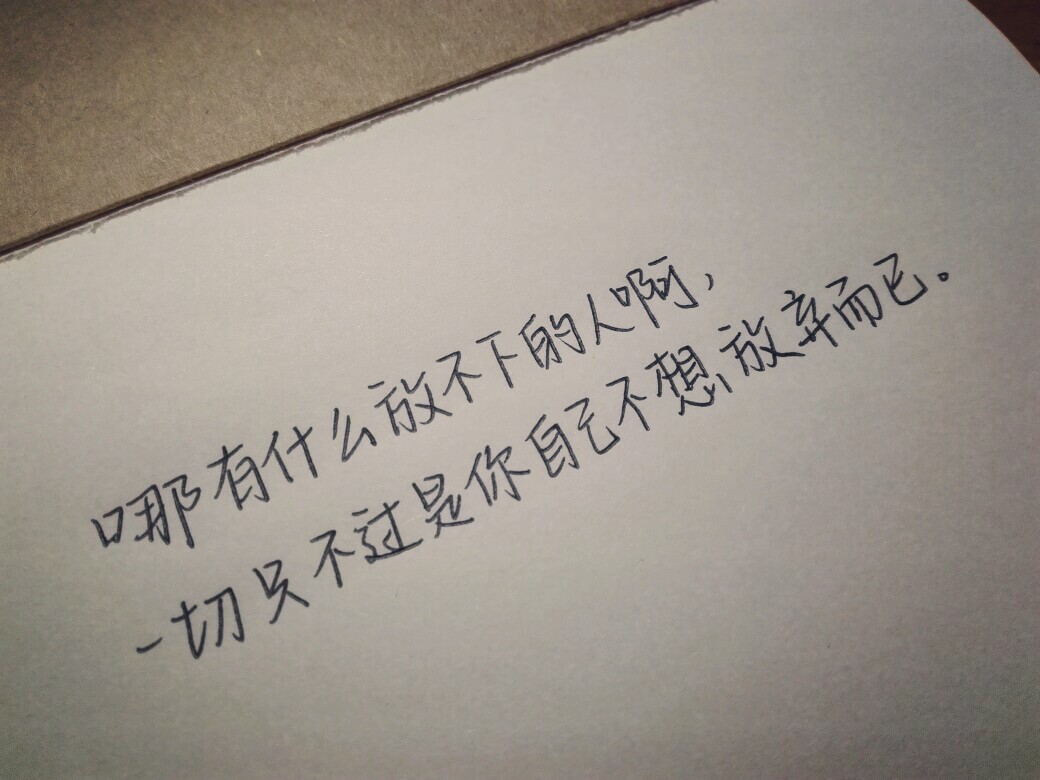 哪有什么放不下的人啊，
一切只不过是你自己不想放弃而已。